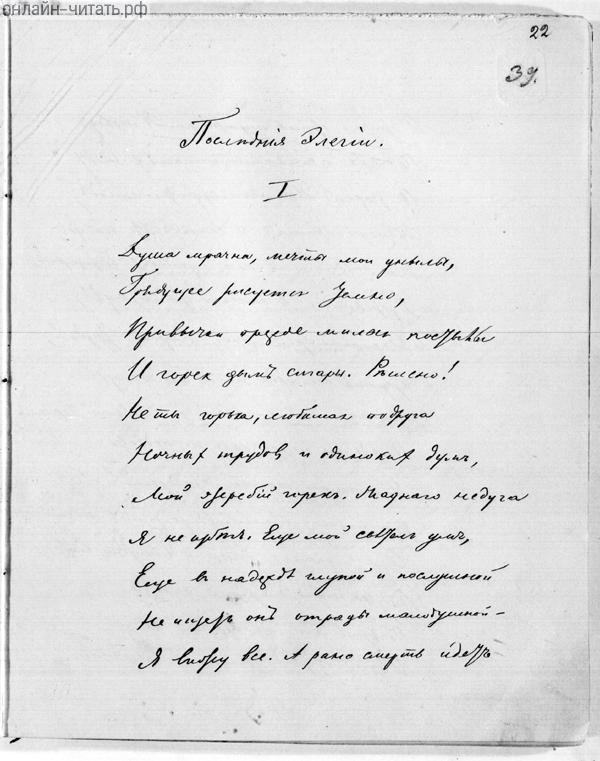 онлайн-читать.рф
22
39.
Последнія Элегіи.
I
Душа мрачна, мечты мои унылы,
Грядущее рисуется темно,
Привычки прежде милыя постылы
И горек дымъ сигары. Рѣшено!
Не ты горька, любимая подруга
Ночных трудов и одиноких думъ,
Мой жеребій горек. Жаднаго недуга
Я не избѣг. Еще мой свѣтел умъ,
Еще в надеждѣ глупой и послушной
Не ищетъ онъ отрады малодушной –
Я вижу все. А рано смерть идетъ